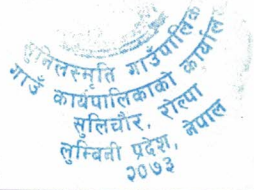 सुनिलस्मृति गाउँपालिका
गाउँ कार्यपालिकाको कार्याल
सुलिचौर, रोल्पा
लुम्बिनी प्रदेश, नेपाल
२०७३